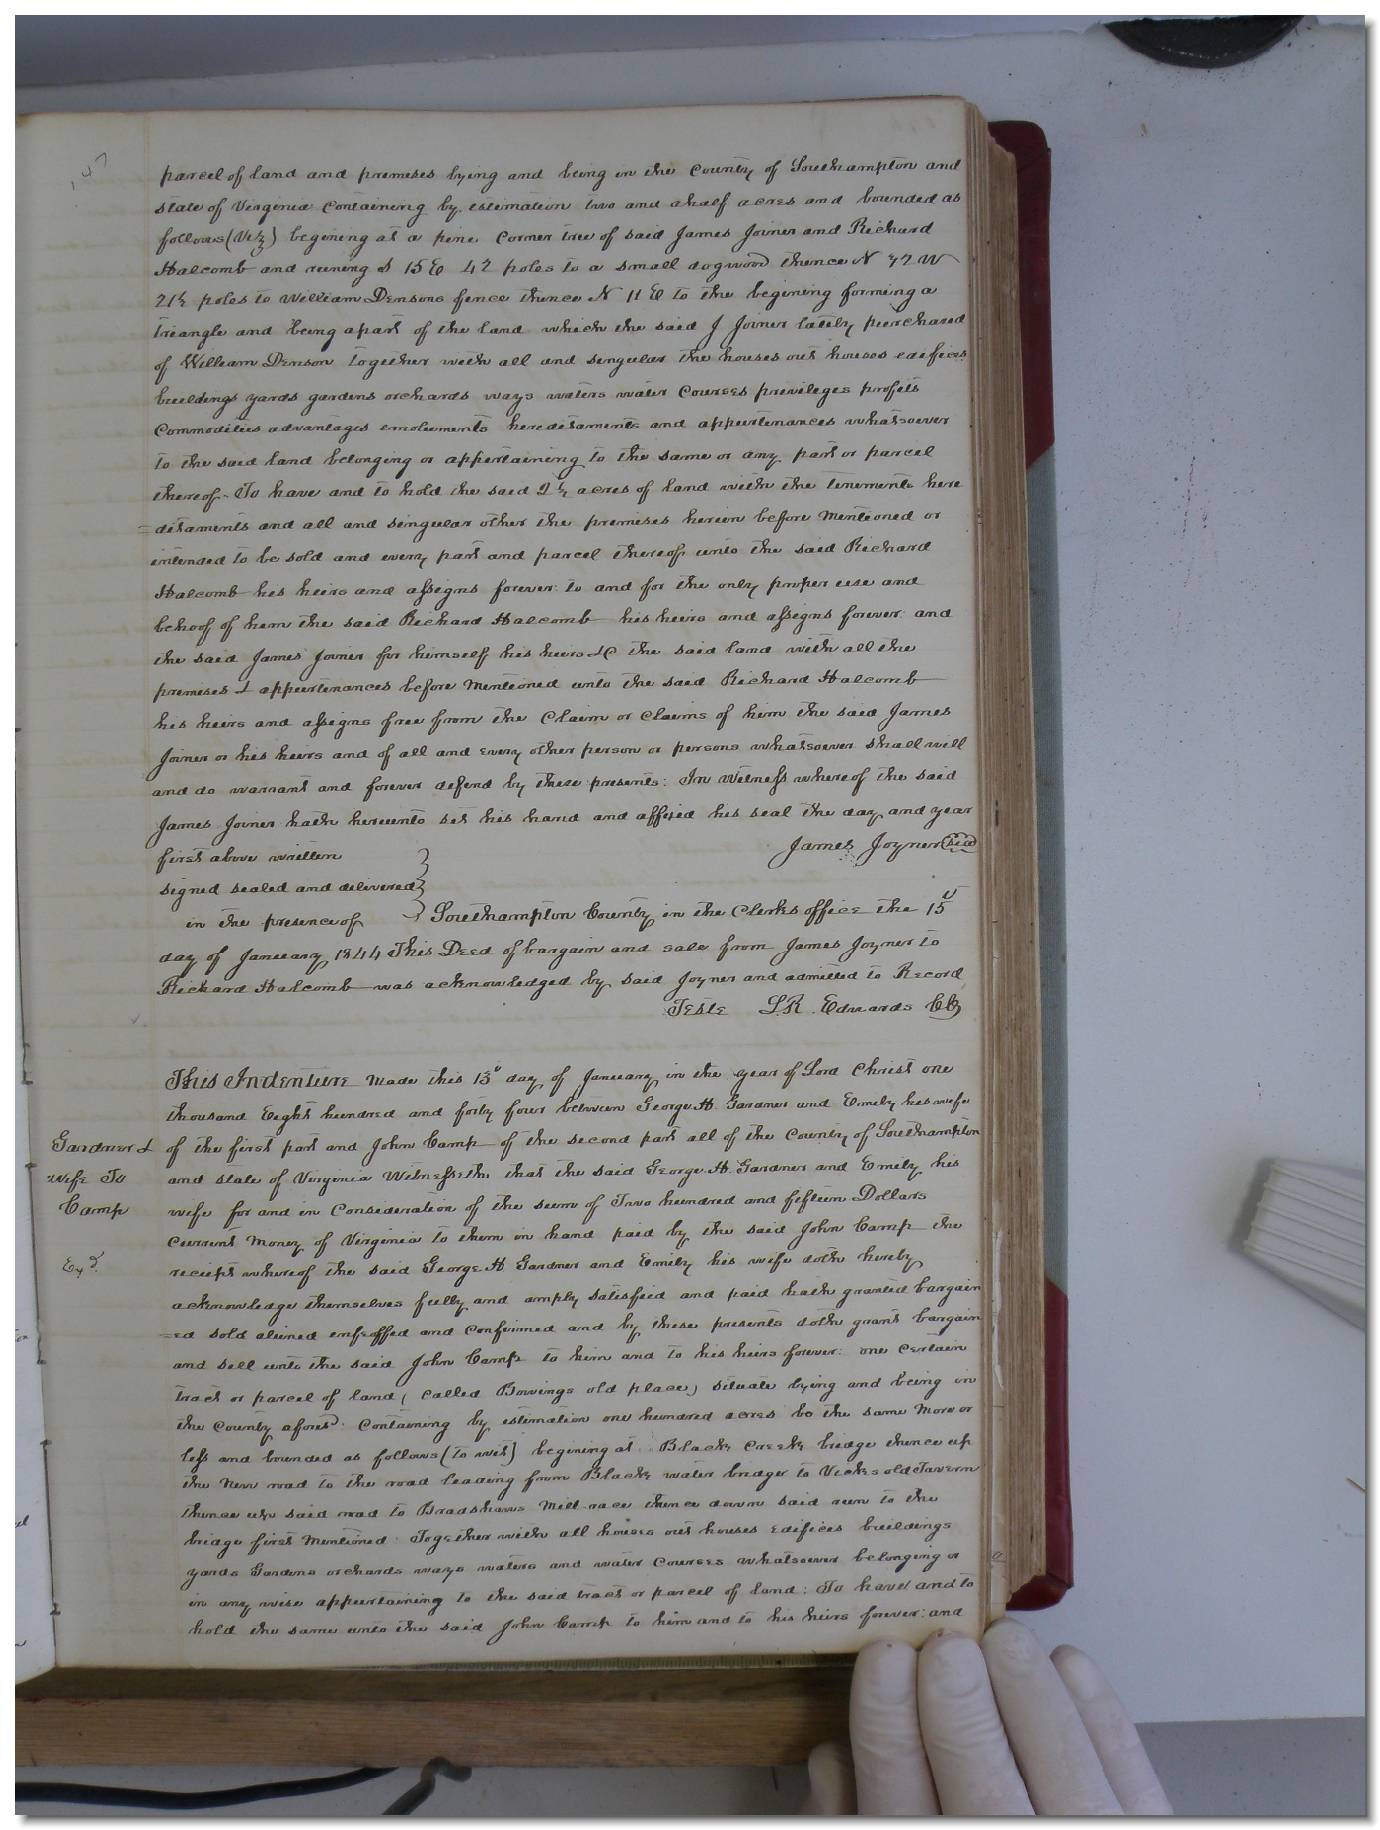 parcel of land and premises lying and being in the County of Southampton and
state of Virginia Containing by estimation two and ahalf acres and bounded as
follows (Viz) begining at a pine Corner tree of said James Joiner and Richard
Halcomb and runing S 15 E 42 poles to a small dogwood thence N 72 W
21½ poles to William Densons fence thence N 11 E to the begining forming a
triangle and being apart of the land which the said J Joiner lately purchased
of William Denson together with all and singular the houses out houses edifices
buildings yards gardens orchards ways waters water Courses privileges profits
Commodities advantages emoluments hereditaments and appurtenances whatsoever
to the said land belonging or appertaining to the same or any part or parcel
thereof. To have and to hold the said 2½ acres of land with the tenements here
=ditaments and all and singular other the premises herein before Mentioned or
intended to be sold and every part and parcel thereof unto the said Richard
Halcomb his heirs and assigns forever: to and for the only proper use and
behoof of him the said Richard Halcomb his heirs and assigns forever: and
the said James Joiner for himself his heirs &C the said land with all the
premises & appurtenances before Mentioned unto the said Richard Halcomb
his heirs and assigns free from the Claim or Claims of him the said James
Joiner or his heirs and of all and every other person or persons whatsoever shall will
and do warrant and forever defend by these presents: In Witness whereof the said
James Joiner hath hereunto set his hand and affixed his seal the day and year
first above written
James Joyner seal
signed sealed and delivered
in the presence of
Southampton County in the Clerks office the 15
day of January 1844 This Deed of bargain and sale from James Joyner to
Richard Halcomb was acknowledged by said Joyner and admitted to Record
Teste L.R. Edwards Clk
This Indenture Made this 13 day of January in the year of Lord Christ one
thousand Eight hundred and forty four between George H. Gardner and Emily his wife
Gardner &
wife To
Camp
Exd.
of the first part and John Camp of the second part all of the County of Southampton
and state of Virginia Witnesseth that the said George H. Gardner and Emily his
wife for and in Consideration of the sum of Two hundred and fifteen Dollars
Current Money of Virginia to them in hand paid by the said John Camp the
reciept whereof the said George H Gardner and Emily his wife doth hereby
acknowledge themselves fully and amply satisfied and paid hath granted bargain
=ed sold aliened enfeoffed and Confirmed and by these presents doth grant bargain
and sell unto the said John Camp to him and to his heirs forever: one Certain
tract or parcel of land ( Called Bowings old place) situate lying and being in
the County aforesd: Containing by estimation one hundred acres be the same More or
less and bounded as follows (to wit) begining at Black Creek bridge thence up
the New road to the road leading from Black water bridge to Vicks old Tavern
thence up said road to Bradshaws Mill race thence down said run to the
bridge first Mentioned: Together with all houses out houses Edifices buildings
yards Gardens orchards ways waters and water Courses whatsoever belonging or
in any wise appurtaining to the said tract or parcel of land: To have and to
hold the same unto the said John Camp to him and to his heirs forever: and